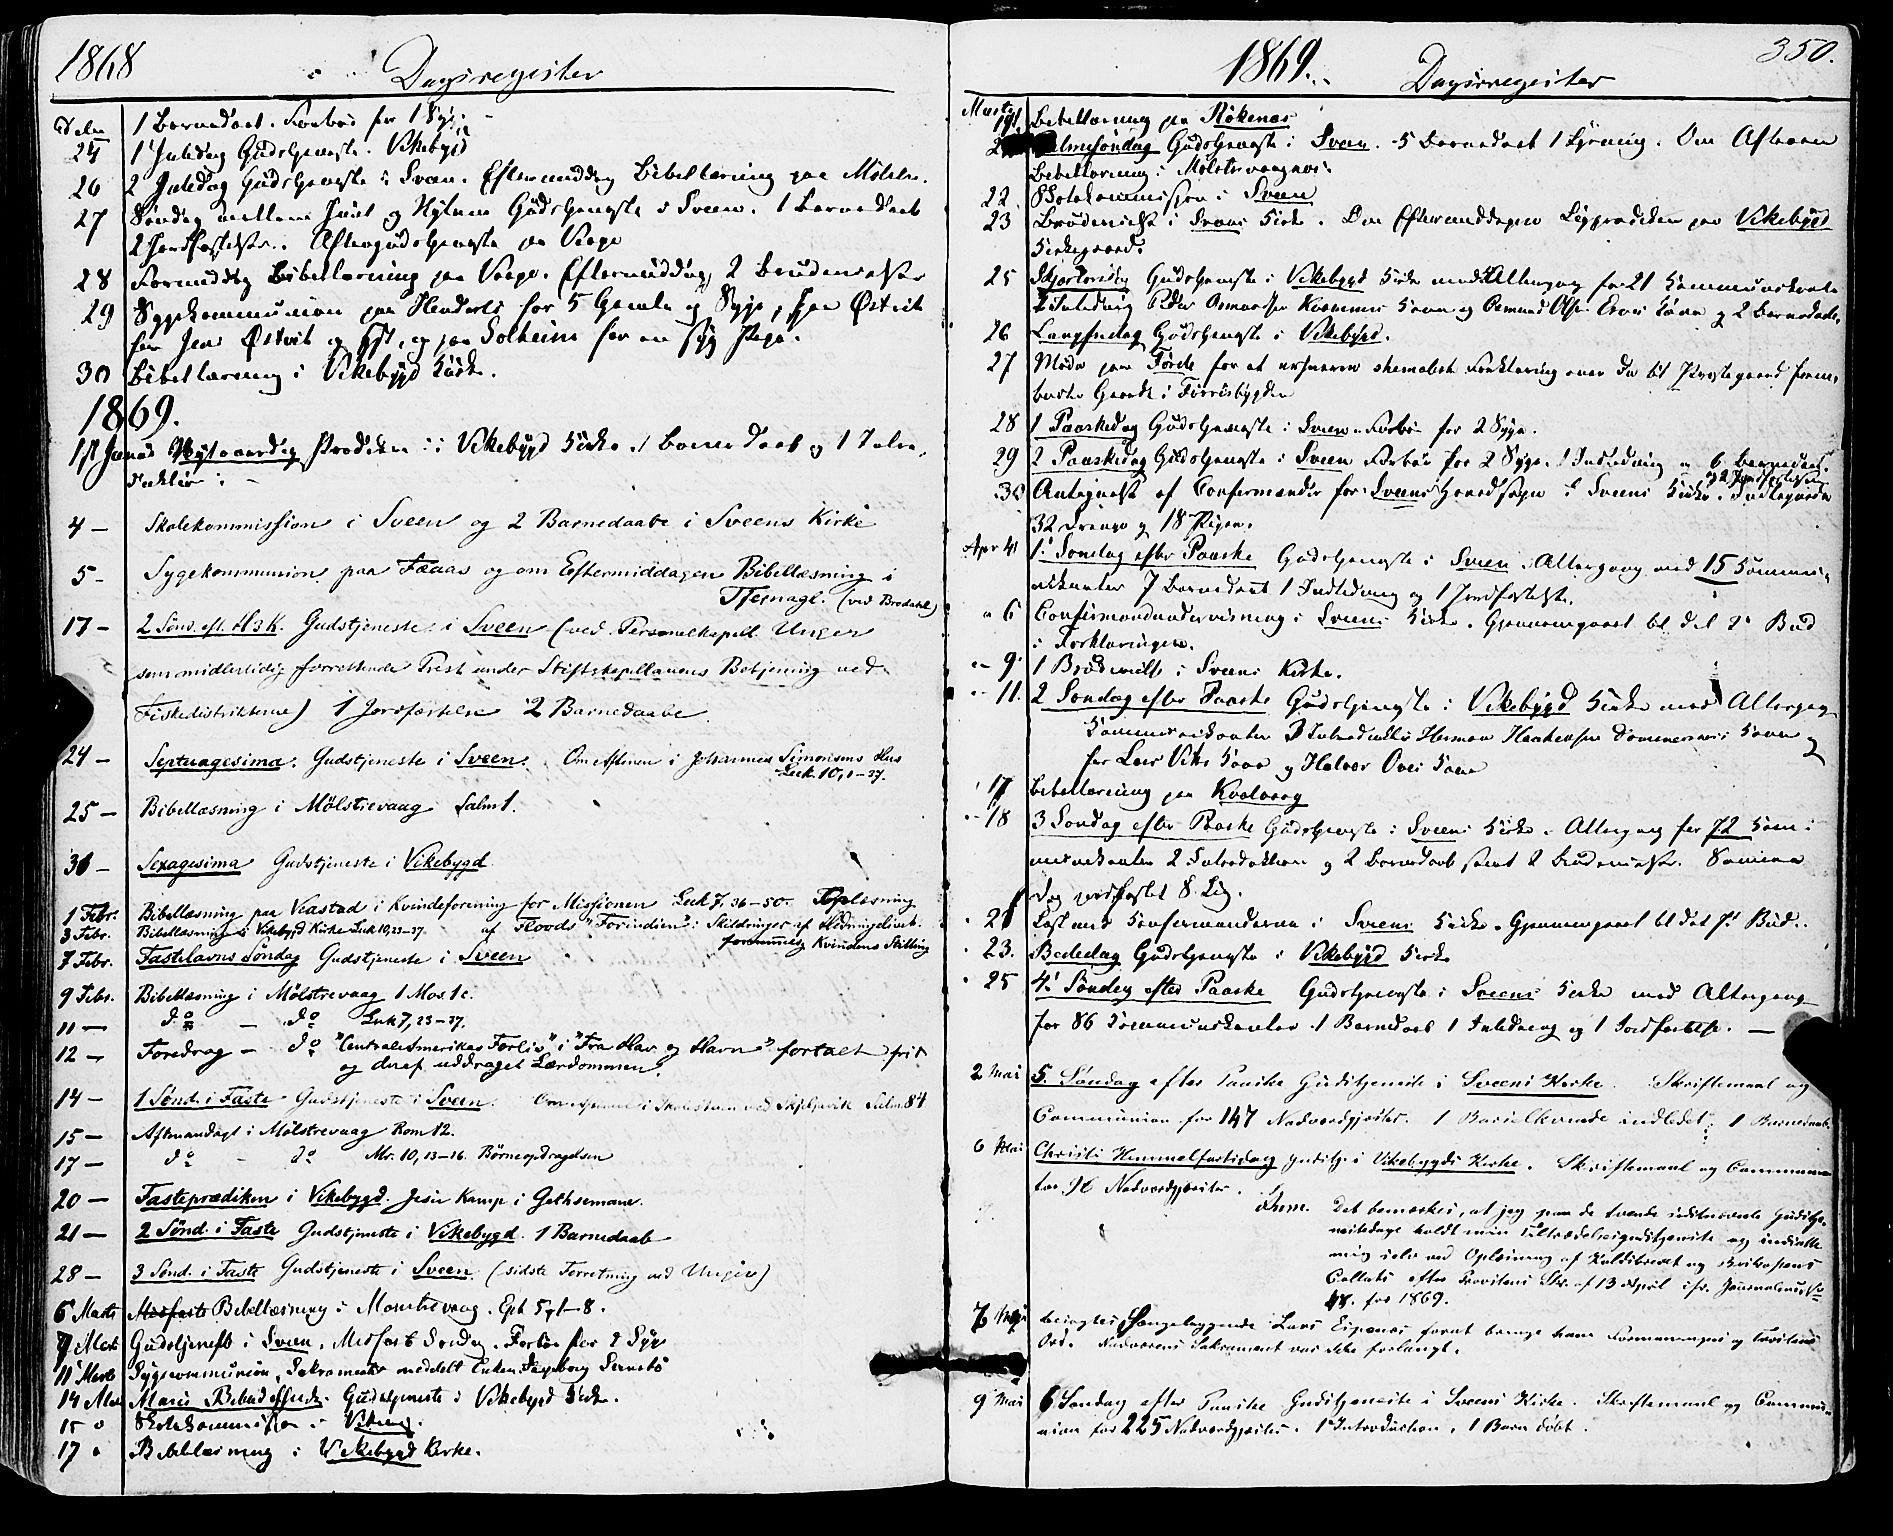 1868
Dagsregister
1 Barnedaab. Forbøn for 1 Syg.
24 1 Juledag Gudstjeneste. Vikebygd
26 2 Juledag Gudstjeneste i Sveen. Eftermiddag Bibellæsning paa
27 Søndag mellem Juul og Nytaar Gudstjeneste i Sveen. 1 Barnedaab
2 Jordfæstelser. Aftengudstjeneste paa
28 Formiddag Bibellæsning paa Eftermiddag 2 Brudevielser
29 Sygekommunion paa for 5 Gamle og Syge, paa Østvik
for Jens Østvik og paa Solheim for en syg Pige.
30 Bibellæsning i Vikebygd Kirke.
1869.
1st Januar Nytaarsdag Prædiken i Vikebygd Kirke. 1 Barnedaab og 1 Intro-
duktion
4 — Skolekommission i Sveen og 2 Barnedaabe i Sveens Kirke
5 - Sygekommunion paa og om Eftermiddagen Bibellæsning i
Tjernagl. (ved Brodahl)
17 - 2 Sønd. eft. H3K. Gudstjeneste i Sveen (ved Personelkapell. Unger
som midlertidig forrettende Prest under Stiftskapellanens Betjening ved
Fiskedistrikterne) 1 Jordfæstelse 2 Barnedaabe.
24 — Septuagesima. Gudstjeneste i Sveen. Om Aftenen i Johannes Simonsens Hus
Luk. 10, 1-37.
25 — Bibellæsning i Mølstrevaag Salm 1.
31 — Sexagesima Gudstjeneste i Vikebygd
1 Febr. Bibellæsning paa Vaastad i Kvindeforening for Missionen Luk 7, 36-50. Oplæsning
3 Febr. Bibellæsning i Vikebygd Kirke Luk 10, 23-37. af Floods "Forindien": Skildringer af Hedningelivet.
fornemmelig Kvindens Stilling
7 Febr. Fastelavns Søndag Gudstjeneste i Sveen
9 Febr. Bibellæsning i Mølstrevaag 1 Mos. 1 c.
11 — do — do Luk 7, 23-37.
12 — Foredrag — do "CentralAmerikas Forliv" i "Fra Hav og Havn" fortalt frit
og deraf uddraget Lærdommen.
14 — 1 Sønd. i Faste Gudstjeneste i Sveen. Om Aftenen i Skolestuen ved Salm 84
15 — Aftenandagt i Mølstrevaag Rom 12.
17 — do - do Mr. 10, 13-16. Børneopdragelsen
20 — Fasteprædiken i Vikebygd. Jesu Kamp i Gethsemane.
21 — 2 Sønd. i Faste Gudstjeneste i Vikebygd. 1 Barnedaab
28 — 3 Sønd. i Faste Gudstjeneste i Sveen. (sidste Forretning ved Unger)
6 Marts Midfaste Bibellæsning i Mølstrevaag. Eph 5, 1-8.
7 Marts Gudstjeneste i Sveen. Midfaste Søndag. Forbøn for 1 Syg
11 Marts Sygecommunion, Sakramentet meddelt Enken Ingeborg
14 Mar Mariæ Bebudelsesd. Gudstjeneste i Vikebygd Kirke.
15 " Skolekommission i Viking.
17 " Bibellæsning i Vikebygd Kirke.
1869.
Dagsregister
350.
Marts
19 Bibellæsning paa Røkenæs
Palmesøndag Gudstjeneste i Sveen. 5 Barnedaab 1 Om Aftenen
Bibellæsning i Mølstrevaagnæs.
22 Skolekommission i Sveen
23 Brudevielse i Sveens Kirke. Om Eftermiddagen Ligprædiken paa Vikebygd
Kirkegaard.
25 Skjærtorsdag Gudstjeneste i Vikebygd Kirke med Altergang for 21 Kommunikanter
Indledning Peder Kone og Kone og 2 Barnedaab.
26 Langfredag Gudstjeneste i Vikebygd.
27 Møde paa Førde for at Forklaring over de til Prestegaard frem-
budte Gaarde i Førrisbygden
28 1 Paaskedag Gudstjeneste i Sveen. Forbøn for 2 Syge.
29 2 Paaskedag Gudstjeneste i Sveen Forbøn for 2 Syge. 1 Indledning og 6 Barnedaab.
og 2 Jordfæstelser
30 Antegnelse af Confirmander for Sveens Hovedsogn i Sveens Kirke. Indtegnede
32 Drenge og 18 Piger.
Apr 4 1. Søndag efter Paaske Gudstjeneste i Sveen. Altergang med 15 Kommu-
nikanter 7 Barnedaab 1 Indledning og 1 Jordfæstelse.
" 6 Confirmandundervisning i Sveens Kirke. Gjennemgaaet til det Bud
i Forklaringen.
" 9 1 Brudevielse i Sveens Kirke.
" 11. 2 Søndag efter Paaske Gudstjeneste i Vikebygd Kirke med Altergang
Kommunikanter 3 Introduktion Herman Haakensen Kone og
for Lars Viks Kone og Halvor Kone
17 Bibellæsning paa Kvalvaag
" 18 3 Søndag efter Paaske Gudstjeneste i Sveens Kirke. Altergang for 72 Kom-
munikanter 2 Introduktion og 2 Barnedaab samt 2 Brudevielser. Samme
Dag jordfæstet 8 Lig.
" 21 Læst med Konfirmanderne i Sveens Kirke. Gjennemgaaet til det 7. Bud.
" 23. Bededag Gudstjeneste i Vikebygd Kirke
" 25 4. Søndag efter Paaske Gudstjeneste i Sveens Kirke med Altergang
for 86 Kommunikanter. 1 Barnedaab 1 Indledning og 1 Jordfæstelse. —
2 Mai 5. Søndag efter Paaske Gudstjeneste i Sveens Kirke. Skriftemaal og
Communion for 147 Nadvergjæster. 1 Barselkvinde indledet; 1 Barnedaab
6 Mai Christi Himmelfartsdag Gudstj. i Vikebygds Kirke. Skriftemaal og Communion
for 96 Nadvergjæster.
Anm. Det bemærkes, at jeg paa de tvende indtnævnte Gudstje-
nestedage holdt min Tiltrædelsesgudstjeneste og indsatte
mig selv ved Oplæsning af Kaldsbrevet og Bispens
Collats efter Provstens Skr. af 13 April jfr. Journalens No
48. for 1869.
7 Mai besøgtes Sengeliggende Lars for at bringe ham Formaninger og Trøstens
Ord. Nadverens Sakrament var ikke forlangt.
9 Mai 6 Søndag efter Paaske Gudstjeneste i Sveens Kirke. Skriftemaal og Commu-
nion for 225 Nadvergjæster. 1 Introduction. 1 Barn døbt.